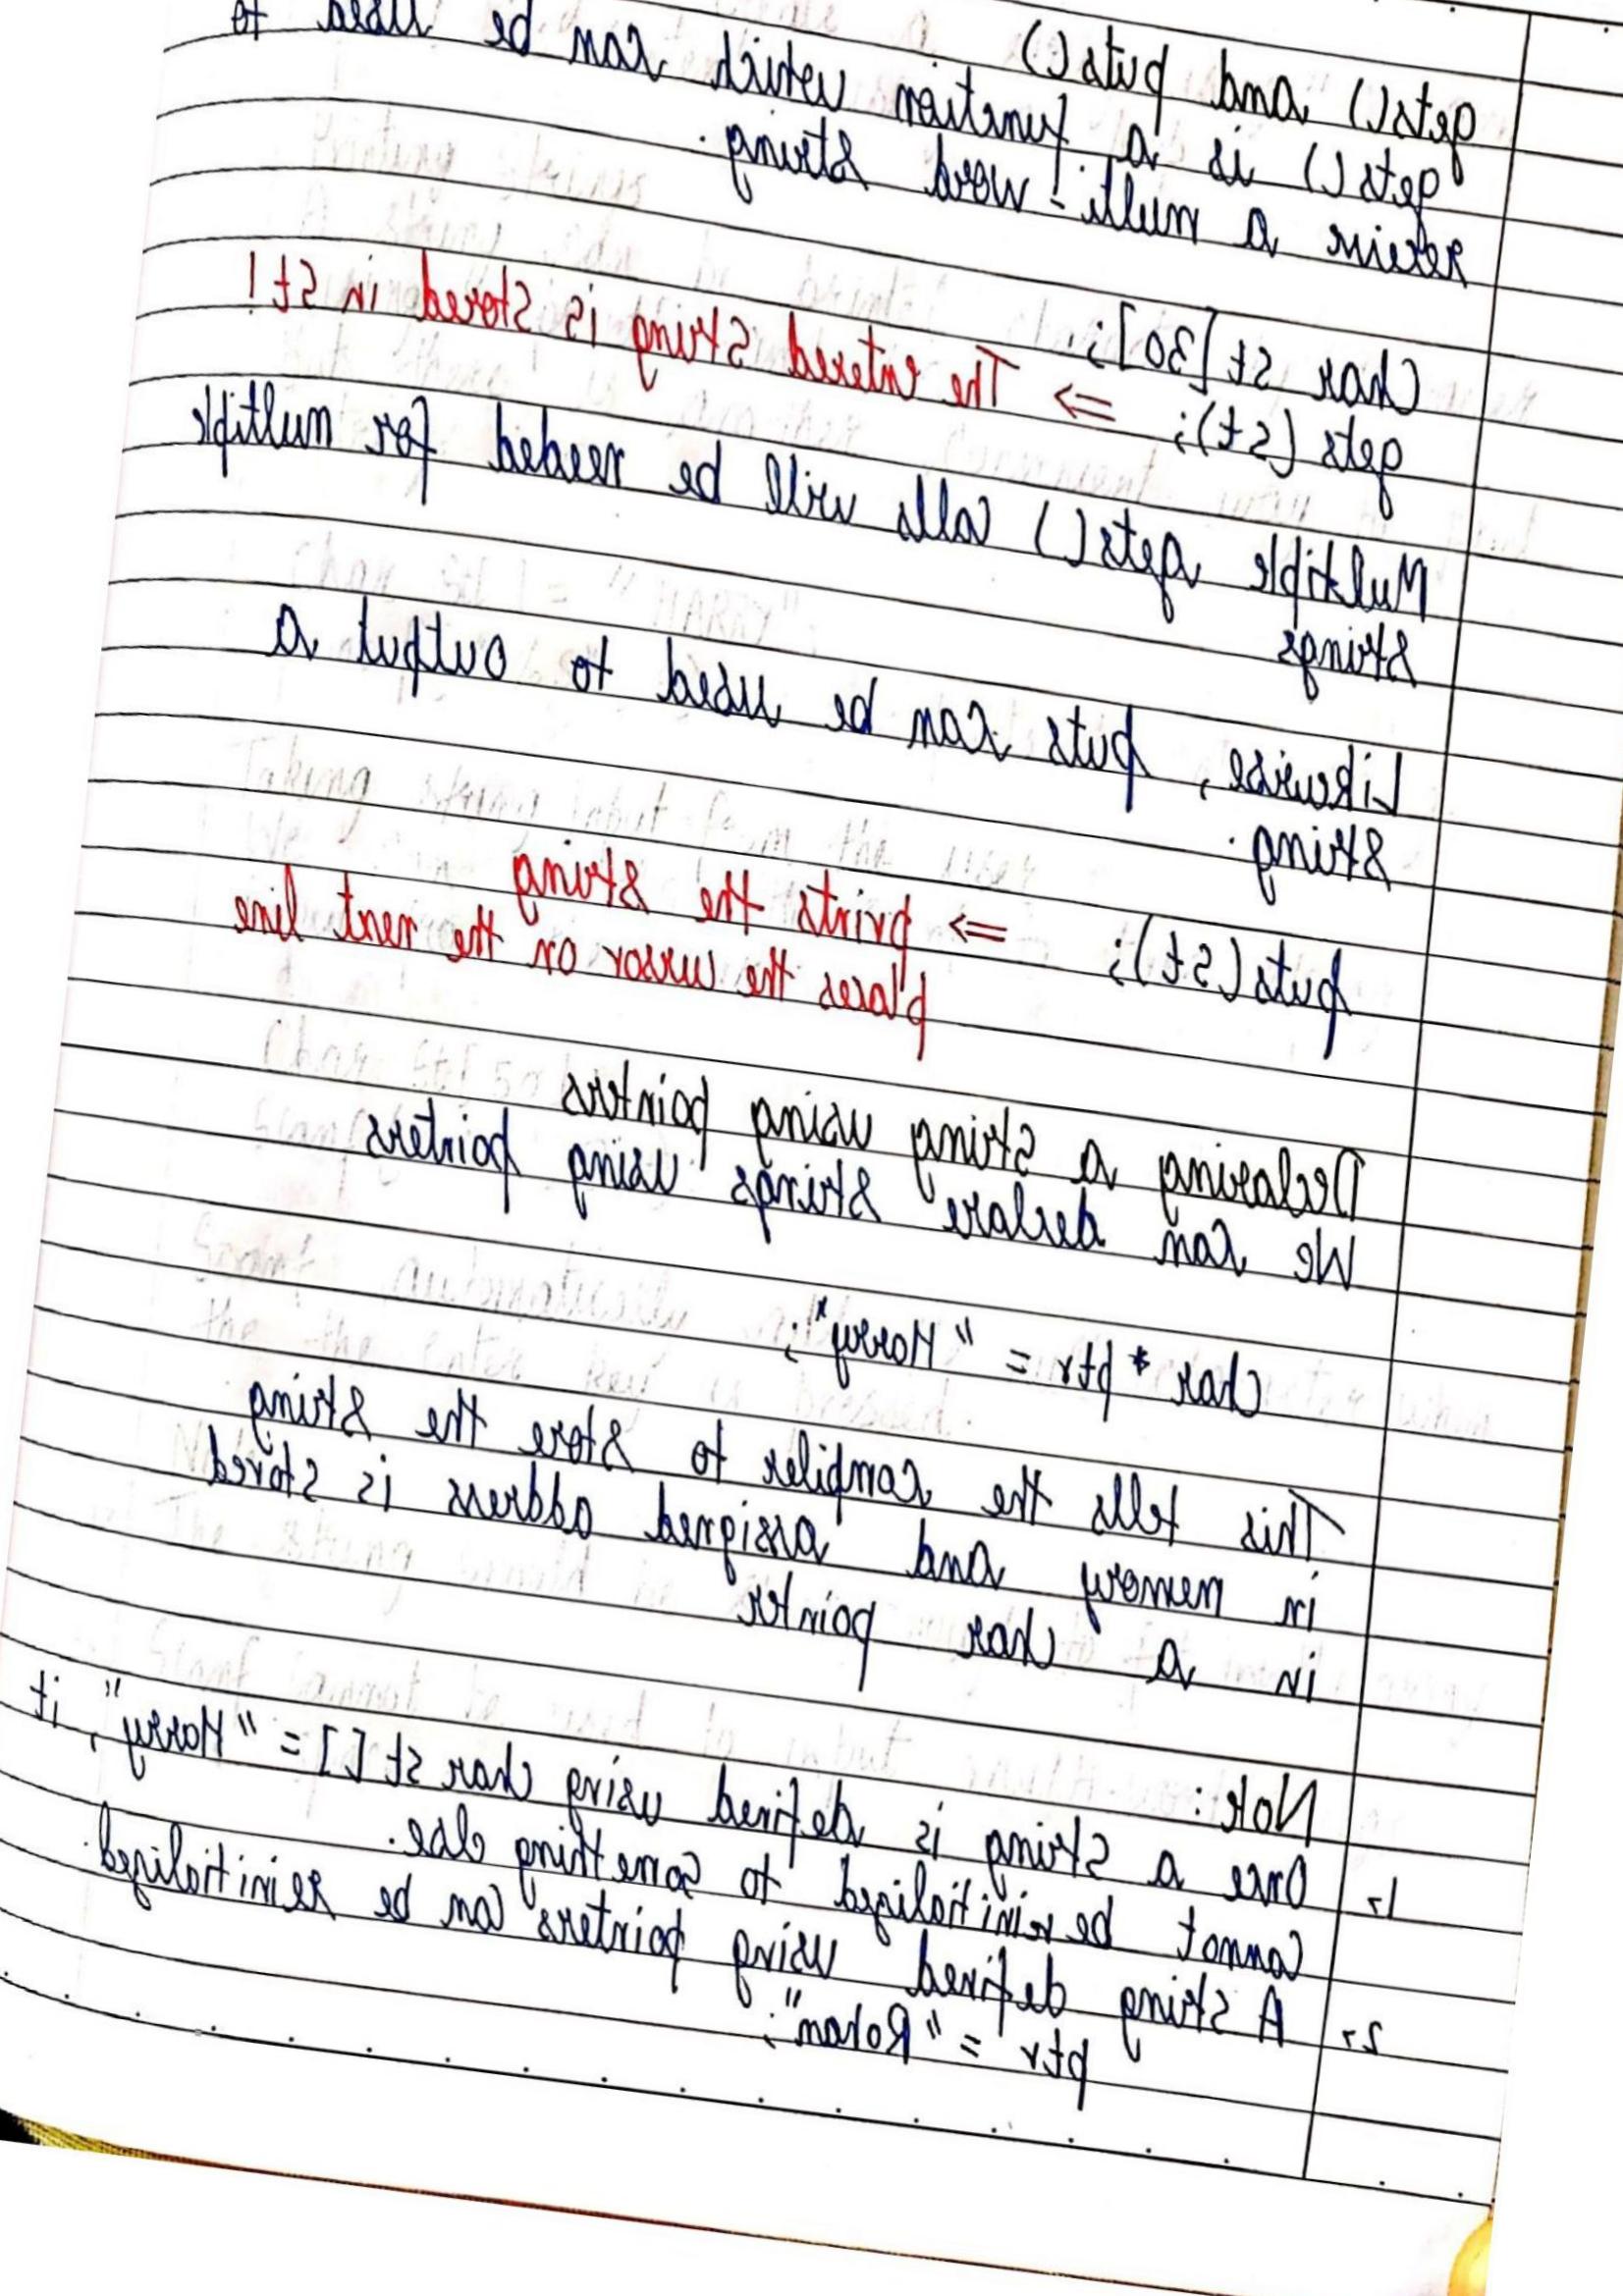 gets() and puts()
gets() is a function which can be used to
recieve a multi-word string.
Char st[30];
gets(st); => The entered string is stored in st!
Multiple gets() calls will be needed for multiple
strings
Likewise, puts can be used to output a
string.
puts(st); => prints the string
places the cursor on the next line
Declaring a string using pointers
We can declare strings using pointers
Char *ptr = "Harry";
This tells the compiler to store the string
in memory and assigned address is stored
in a char pointer
Note:
1→ Once a string is defined using char st[] = "Harry", it
cannot be reinitialized to something else.
2→ A string defined using pointers can be reinitialized.
ptr = "Rohan";